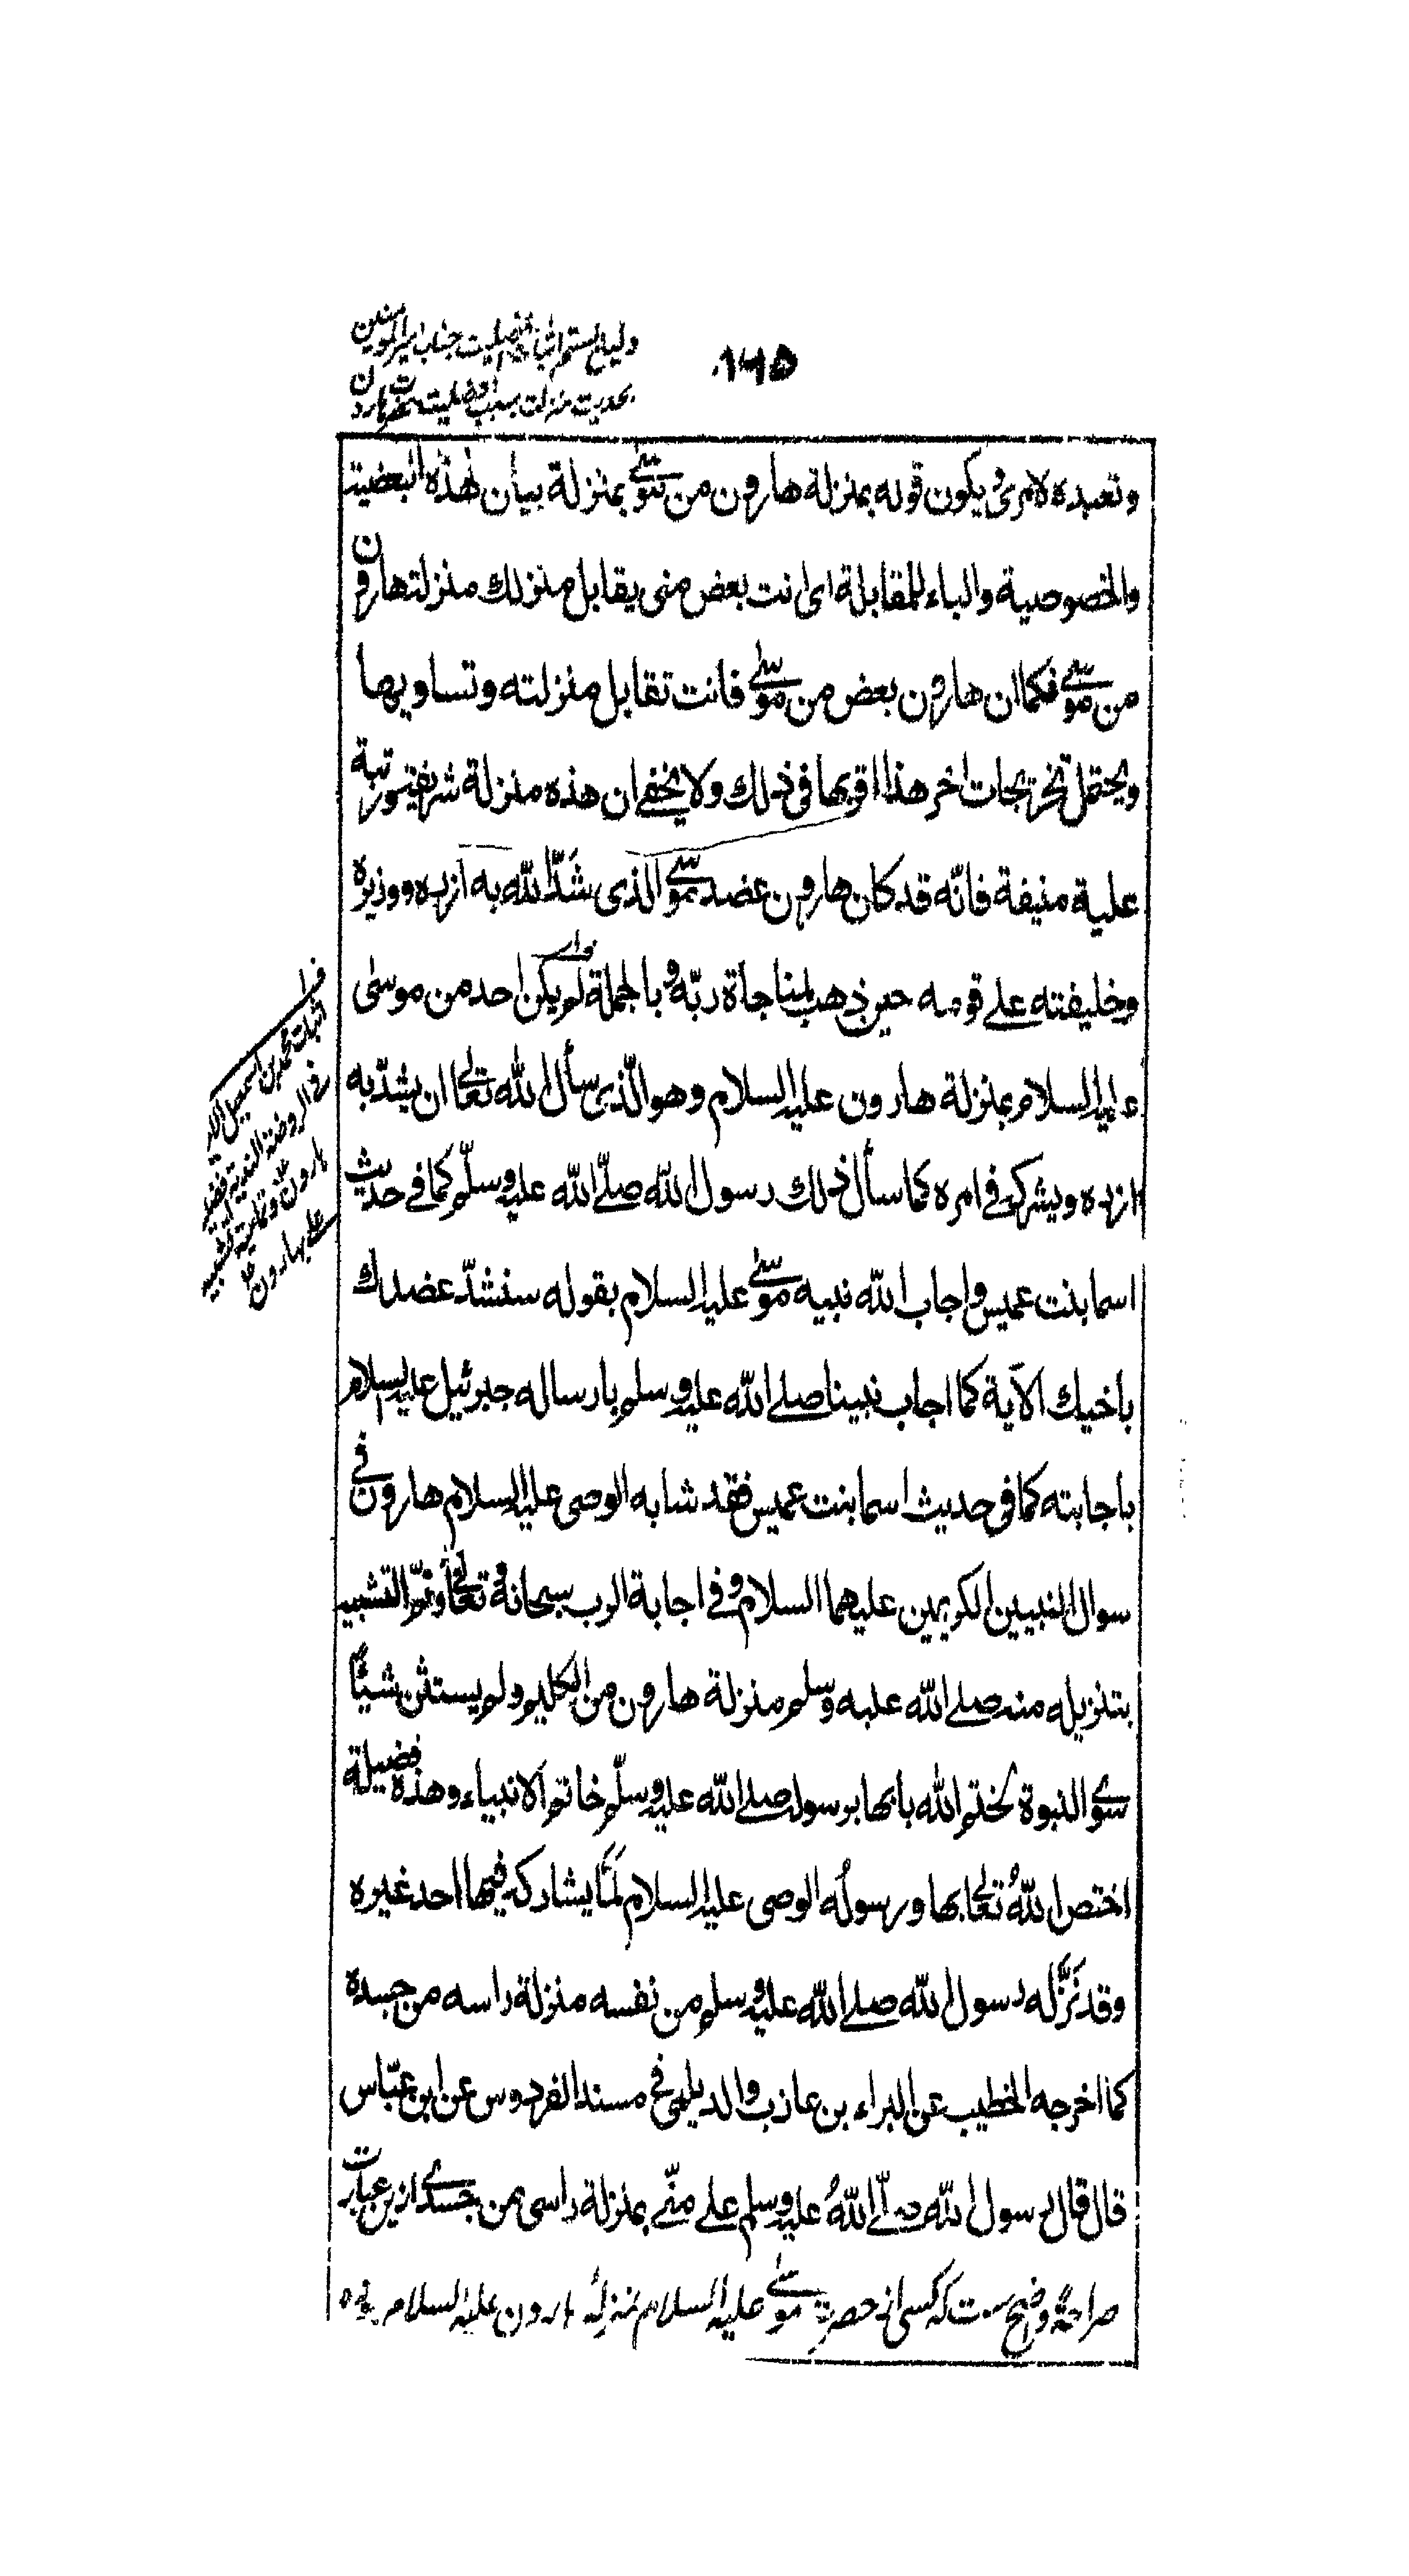 ۱۶۵
دلیل بستم اثبات افضلیت جناب امیرالمومنین
بحدیث منزلت بسبب افضلیت حضرت هارون
وتعبده لامری ويكون قوله بمنزلة هارون من موسی بمنزلة بيان لهذه البعضية
والخصوصية والباء للمقابلة ای انت بعض منی يقابل منزلك منزلت هارون
من موسی فكما ان هارون بعض من موسی فانت تقابل منزلته وتساويها
ويحتمل تخريجات اخر هذا اقوبها فی ذلك ولا يخفے ان هذه منزلة شريفة ورتبة
علية منيفة فانّه قد كان هارون عضد موسی الذی شدّ الله به ازره ووزيره
وخليفته علے قومه حين ذهب لمناجاة ربّه وبالجملة لم يكن احد من موسٰی
عليه السلام بمنزلة هارون عليه السلام وهو الّذی سأل الله تعالے ان يشدّ به
ازره ويشركه فے امره كما سأل ذلك رسول الله صلّے الله عليه وسلّم كما فے حديث
اسما بنت عميس واجاب الله نبيه موسی عليه السلام بقوله سنشدّ عضدك
باخيك الآية كما اجاب نبينا صلے الله عليه وسلم بارساله جبرئيل عليه السلام
باجابته كما فی حديث اسما بنت عميس فقد شابه الوصی عليه السلام هارون فے
سوال النبيين الكريمين عليهما السلام وفے اجابة الرب سبحانه وتعالے وتمّ التشبيه
بتنزيله منه صلے الله عليه وسلم منزلة هارون من الكليم ولم يستثن شيئًا
سوی النبوة لختم الله بابها برسوله صلے الله عليه وسلّم خاتم الانبياء وهذه فضيلة
اختص اللهُ تعالے بها ورسولُه الوصی عليه السلام لمّا يشاركه فيها احد غيره
وقد نَزَّله رسول الله صلے الله عليه وسلم من نفسه منزلة راسه من جسده
كما اخرجه الخطيب عن البراء بن عازب والديلمی فے مسند الفردوس عن ابن عبّاس
قال قال رسول الله صلّے اللهُ عليه وسلم علے منّے بمنزلة راسی من جسدی ازین عبارت
صراحةً واضح ست كه كسی از حضرت موسی عليه السلام بمنزلهٔ هارون عليه السلام نبوده
اثبات محمد بن اسمعيل الامير
فی الروضة الندية
هارون
علے بهارون